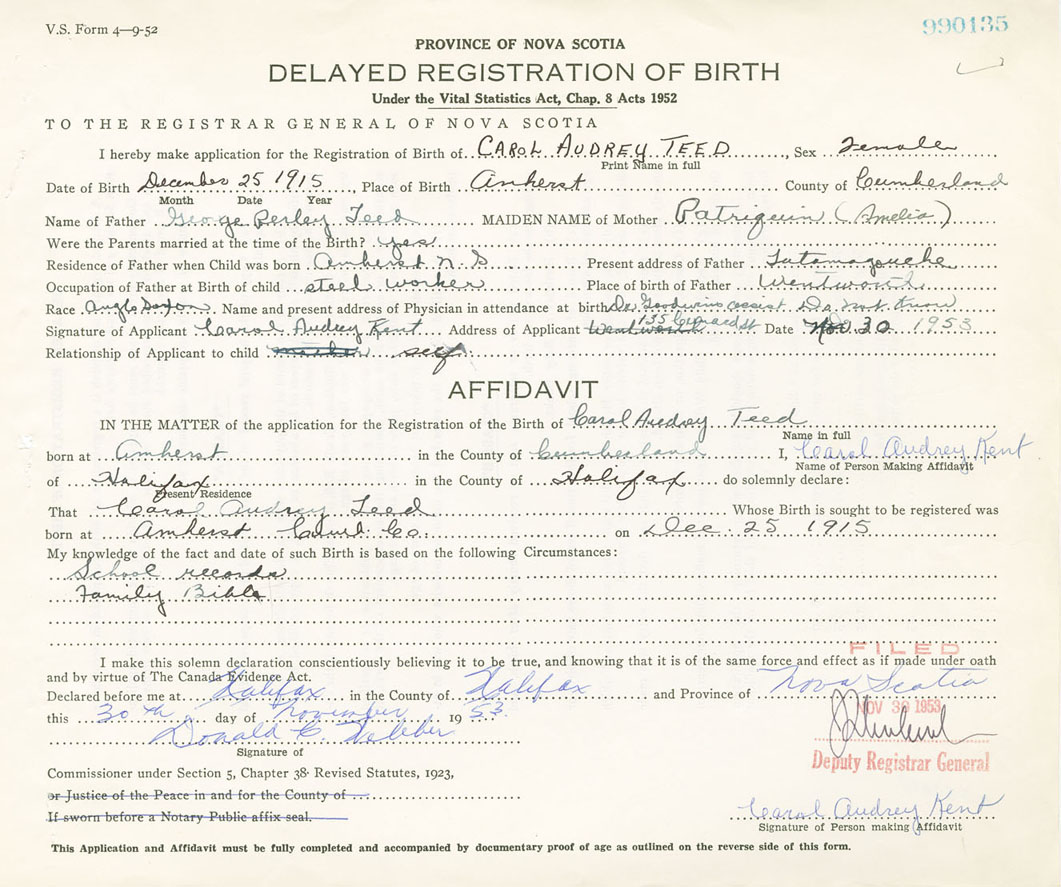 V.S. Form 4—9-52
990135
PROVINCE OF NOVA SCOTIA
DELAYED REGISTRATION OF BIRTH
Under the Vital Statistics Act, Chap. 8 Acts 1952
TO THE REGISTRAR GENERAL OF NOVA SCOTIA
I hereby make application for the Registration of Birth of CAROL AUDREY TEED, Sex Female
Print Name in full
Date of Birth December 25 1915, Place of Birth Amherst County of Cumberland
Month Date Year
Name of Father George Perley Teed MAIDEN NAME of Mother Patriquin (Amelia)
Were the Parents married at the time of the Birth? yes
Residence of Father when Child was born Amherst N.S. Present address of Father Tatamagouche
Occupation of Father at Birth of child steel worker Place of birth of Father Wentworth
Race Anglo Saxon Name and present address of Physician in attendance at birth Dr. Goodwin Do not know
135
Signature of Applicant Carol Audrey Kent Address of Applicant Wentworth Date Nov 30 1953
Relationship of Applicant to child mother self
AFFIDAVIT
IN THE MATTER of the application for the Registration of the Birth of Carol Audrey Teed
Name in full
born at Amherst in the County of Cumberland I, Carol Audrey Kent
Name of Person Making Affidavit
of Halifax in the County of Halifax do solemnly declare:
Present Residence
That Carol Audrey Teed Whose Birth is sought to be registered was
born at Amherst Cumb. Co. on Dec. 25 1915
My knowledge of the fact and date of such Birth is based on the following Circumstances:
School records
Family Bible
FILED
I make this solemn declaration conscientiously believing it to be true, and knowing that it is of the same force and effect as if made under oath
and by virtue of The Canada Evidence Act.
Declared before me at Halifax in the County of Halifax and Province of Nova Scotia
this 30th day of November 1953.
NOV 30 1953
Donald C. Webber
Signature of
Deputy Registrar General
Commissioner under Section 5, Chapter 38 Revised Statutes, 1923,
or Justice of the Peace in and for the County of
If sworn before a Notary Public affix seal.
Carol Audrey Kent
Signature of Person making Affidavit
This Application and Affidavit must be fully completed and accompanied by documentary proof of age as outlined on the reverse side of this form.